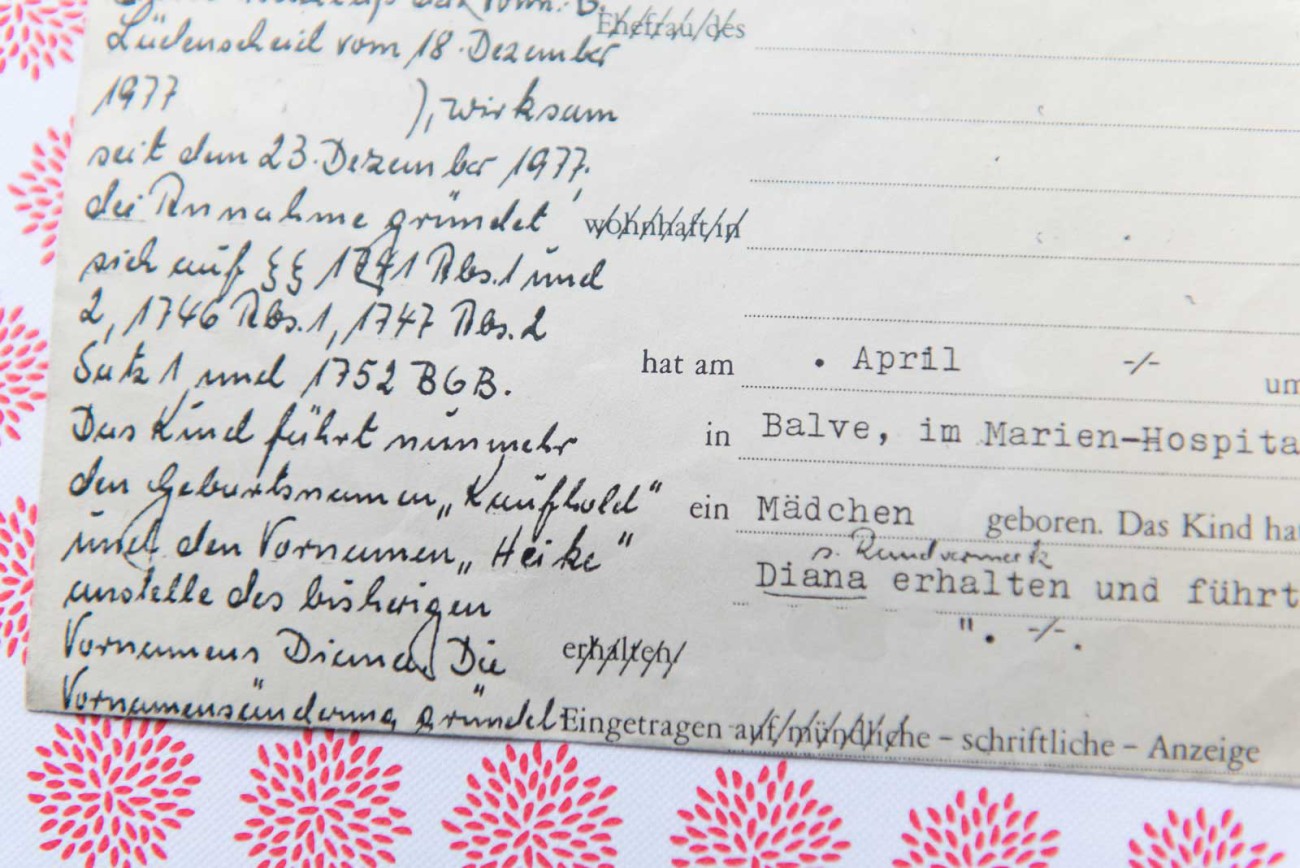 Lüdenscheid vom 18. Dezember
1977 ), wirksam
seit dem 23. Dezember 1977;
die Annahme gründet
sich auf §§ 1741 Abs. 1 und
2, 1746 Abs. 1, 1747 Abs. 2
Satz 1 und 1752 BGB.
Das Kind führt nunmehr
den Geburtsnamen „Kaufhold"
und den Vornamen „Heike"
anstelle des bisherigen
Vornamens Diana. Die
Vornamensänderung gründet
Ehefrau des
wohnhaft in
hat am . April -/- um
in Balve, im Marien-Hospita
ein Mädchen geboren. Das Kind ha
s. Randvermerk
Diana erhalten und führt
". -/-.
erhalten
Eingetragen auf mündliche – schriftliche – Anzeige